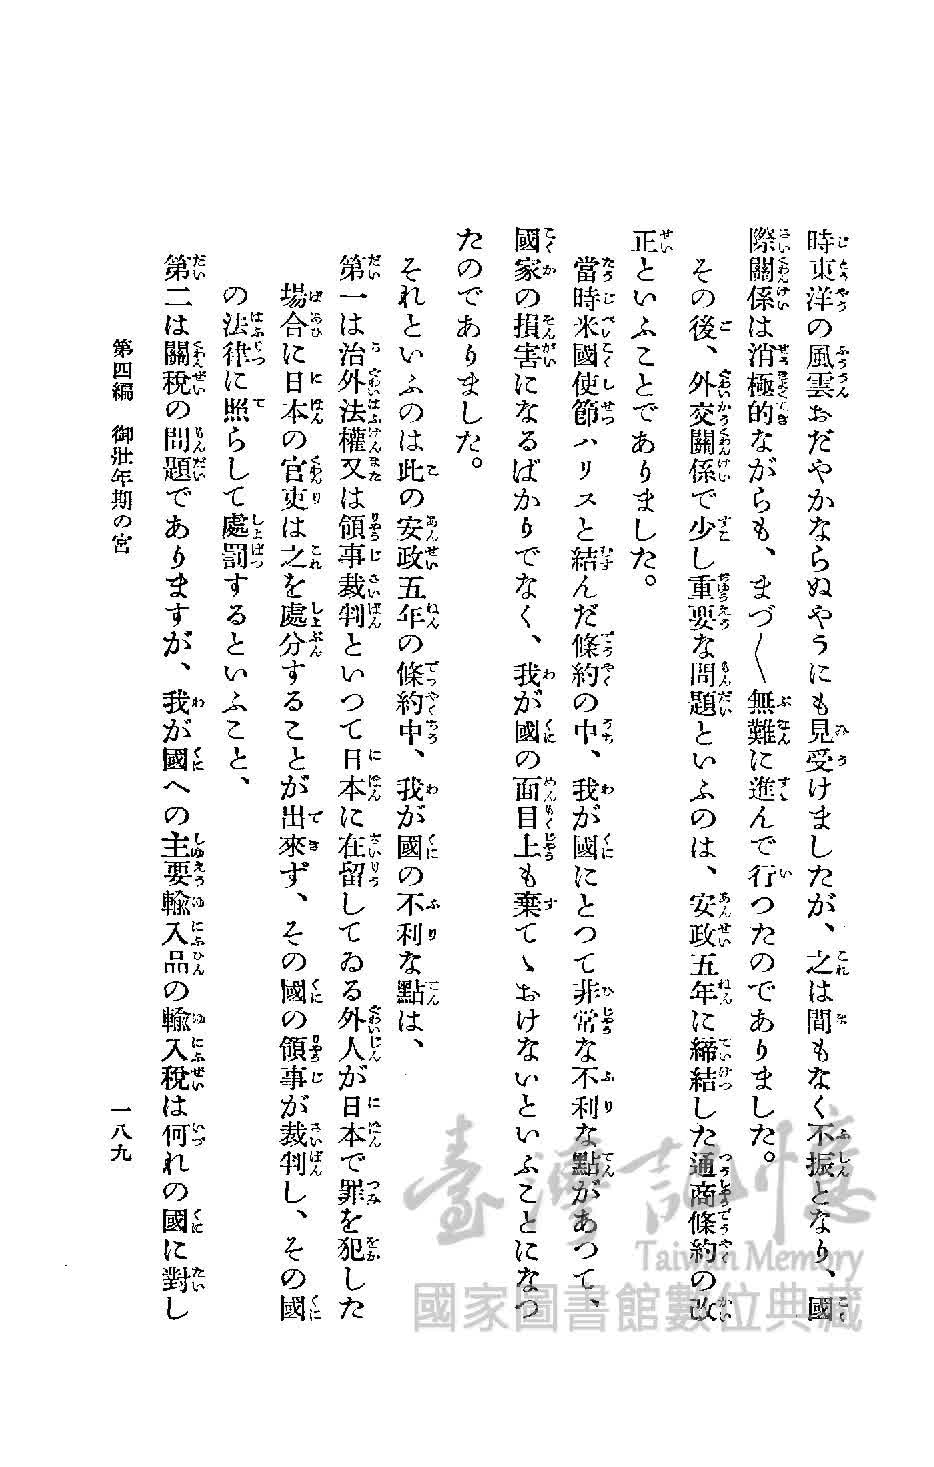 時東洋の風雲おだやかならぬやうにも見受けましたが、之は間もなく不振となり、國
際關係は消極的ながらも、まづ〱無難に進んで行つたのでありました。
その後、外交關係で少し重要な問題といふのは、安政五年に締結した通商條約の改
正といふことでありました。
當時米國使節ハリスと結んだ條約の中、我が國にとつて非常な不利な點があつて、
國家の損害になるばかりでなく、我が國の面目上も棄てゝおけないといふことになつ
たのでありました。
それといふのは此の安政五年の條約中、我が國の不利な點は、
第一は治外法權又は領事裁判といつて日本に在留してゐる外人が日本で罪を犯した
場合に日本の官吏は之を處分することが出來ず、その國の領事が裁判し、その國
の法律に照らして處罰するといふこと、
第二は關稅の問題でありますが、我が國への主要輸入品の輸入稅は何れの國に對し
第四編 御壯年期の宮
一八九
臺灣記憶
Taiwan Memory
國家圖書館數位典藏